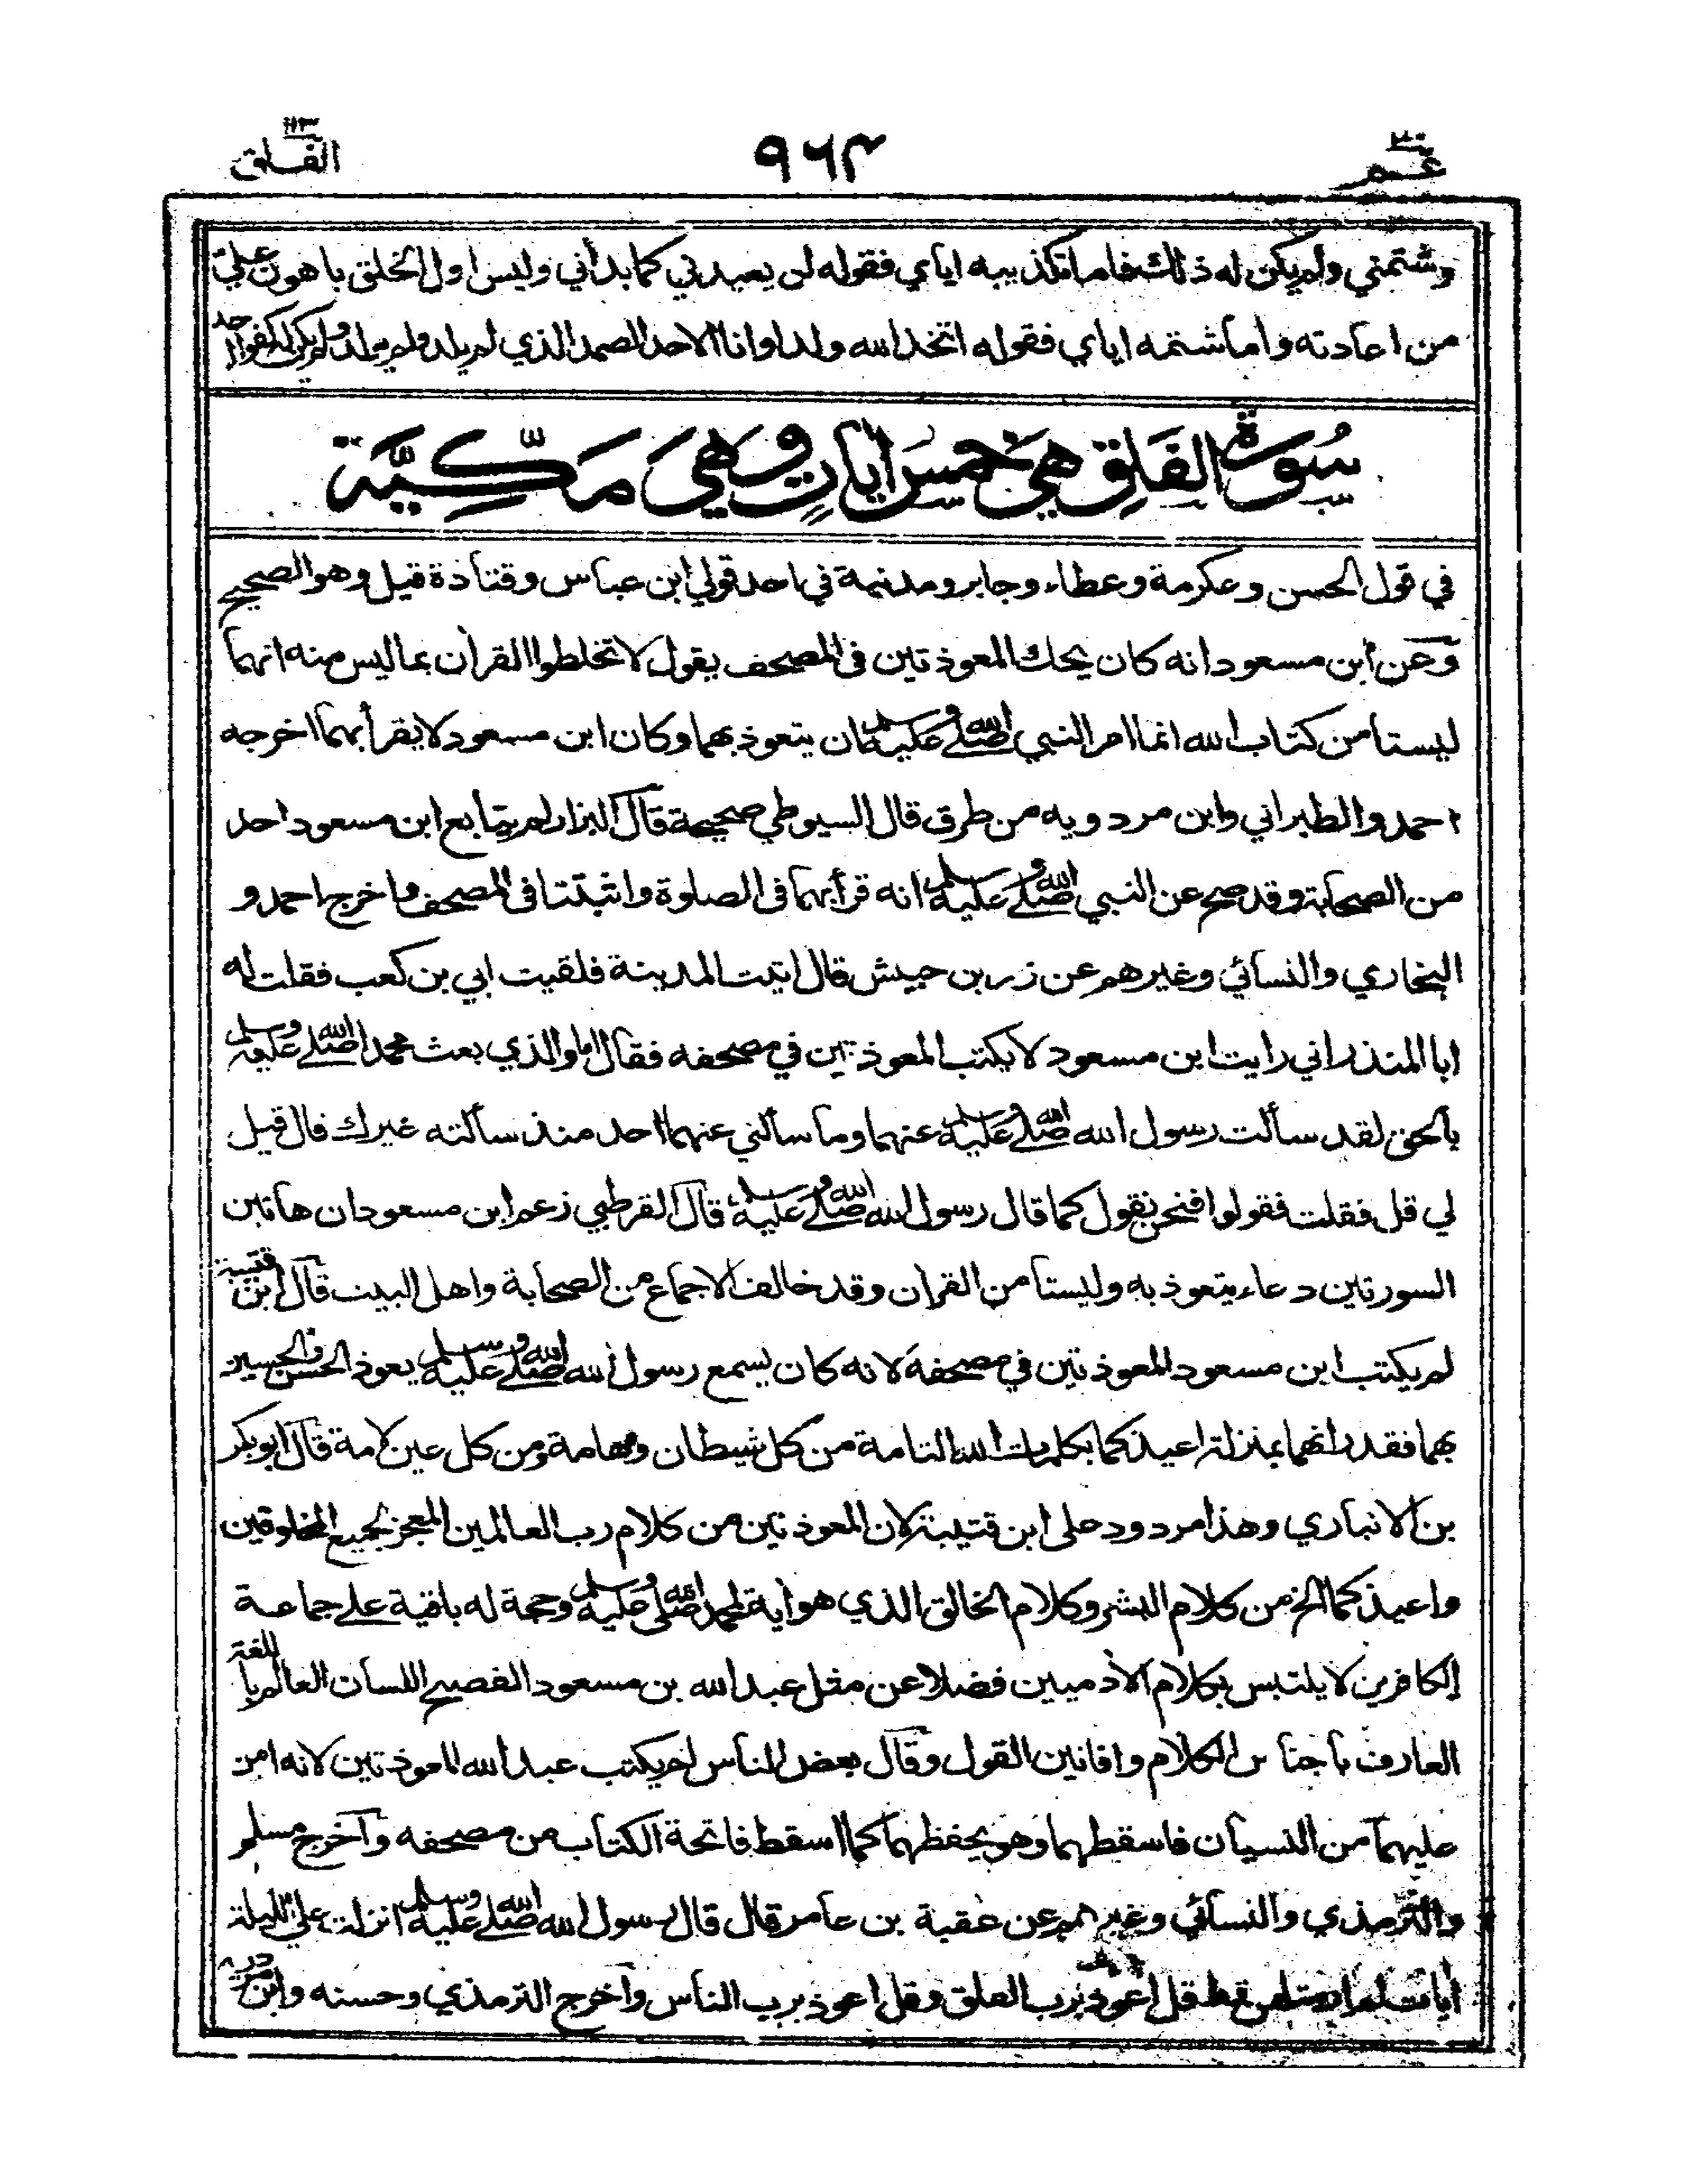 عم ٣٠ ٩٦٤ الفلق ١١٣
وشتمني ولم يكن له ذلك فاما تكذيبه اياي فقوله لن يعيدني كما بدأني وليس اول الخلق باهون علي
من اعادته واما شتمه اياي فقوله اتخذ الله ولدا وانا الاحد الصمد الذي لم يلد ولم يولد ولم يكن له كفوا احد
سُورة الفَلَقِ هِيَ خَمسَ اٰيَاتٍ وَهِيَ مَكِّيَّة
في قول الحسن وعكرمة وعطاء وجابر ومدنية في احد قولي ابن عباس وقتادة قيل وهو الصحيح
وعن ابن مسعود انه كان يحك المعوذتين فى المصحف يقول لا تخلطوا القرآن بما ليس منه انهما
ليستا من كتاب الله انما امر النبي صلى الله عليه وسلم ان يتعوذ بهما وكان ابن مسعود لا يقرأ بهما اخرجه
احمد والطبراني وابن مردويه من طرق قال السيوطي صحيحة قال البزار لم يتابع ابن مسعود احد
من الصحابة وقد صح عن النبي صلى الله عليه وسلم انه قرأ بهما فى الصلوة واثبتتا فى المصحف واخرج احمد و
البخاري والنسائي وغيرهم عن زر بن حبيش قال اتيت المدينة فلقيت ابي بن كعب فقلت له
ابا المنذر اني رايت ابن مسعود لا يكتب المعوذتين في مصحفه فقال اما والذي بعث محمدا صلى الله عليه وسلم
بالحق لقد سألت رسول الله صلى الله عليه وسلم عنهما وما سألني عنهما احد منذ سألته غيرك قال قيل
لي قل فقلت فقولوا فنحن نقول كما قال رسول الله صلى الله عليه وسلم قال القرطبي زعم ابن مسعود ان هاتين
السورتين دعاء يتعوذ به وليستا من القرآن وقد خالف الاجماع من الصحابة واهل البيت قال ابن قتيبة
لم يكتب ابن مسعود المعوذتين في مصحفه لانه كان يسمع رسول الله صلى الله عليه وسلم يعوذ الحسن والحسين
بهما فقدر انهما بمنزلة اعيذكما بكلمات الله التامة من كل شيطان وهامة ومن كل عين لامة قال ابو بكر
بن الانباري وهذا مردود على ابن قتيبة لان المعوذتين من كلام رب العالمين المعجز لجميع المخلوقين
واعيذكما الخ من كلام البشر وكلام الخالق الذي هو آية لمحمد صلى الله عليه وسلم وحجة له باقية على جماعة
الكافرين لا يلتبس بكلام الآدميين فضلا عن مثل عبد الله بن مسعود الفصيح اللسان العالم باللغة
العارف باجناس الكلام وافانين القول وقال بعض الناس لم يكتب عبد الله المعوذتين لانه امن
عليهما من النسيان فاسقطهما وهو يحفظهما كما اسقط فاتحة الكتاب من مصحفه وآخرج مسلم
والترمذي والنسائي وغيرهم عن عقبة بن عامر قال قال رسول الله صلى الله عليه وسلم انزلت علي الليلة
آيات لم ار مثلهن قط قل اعوذ برب الفلق وقل اعوذ برب الناس وآخرج الترمذي وحسنه وابن مردويه